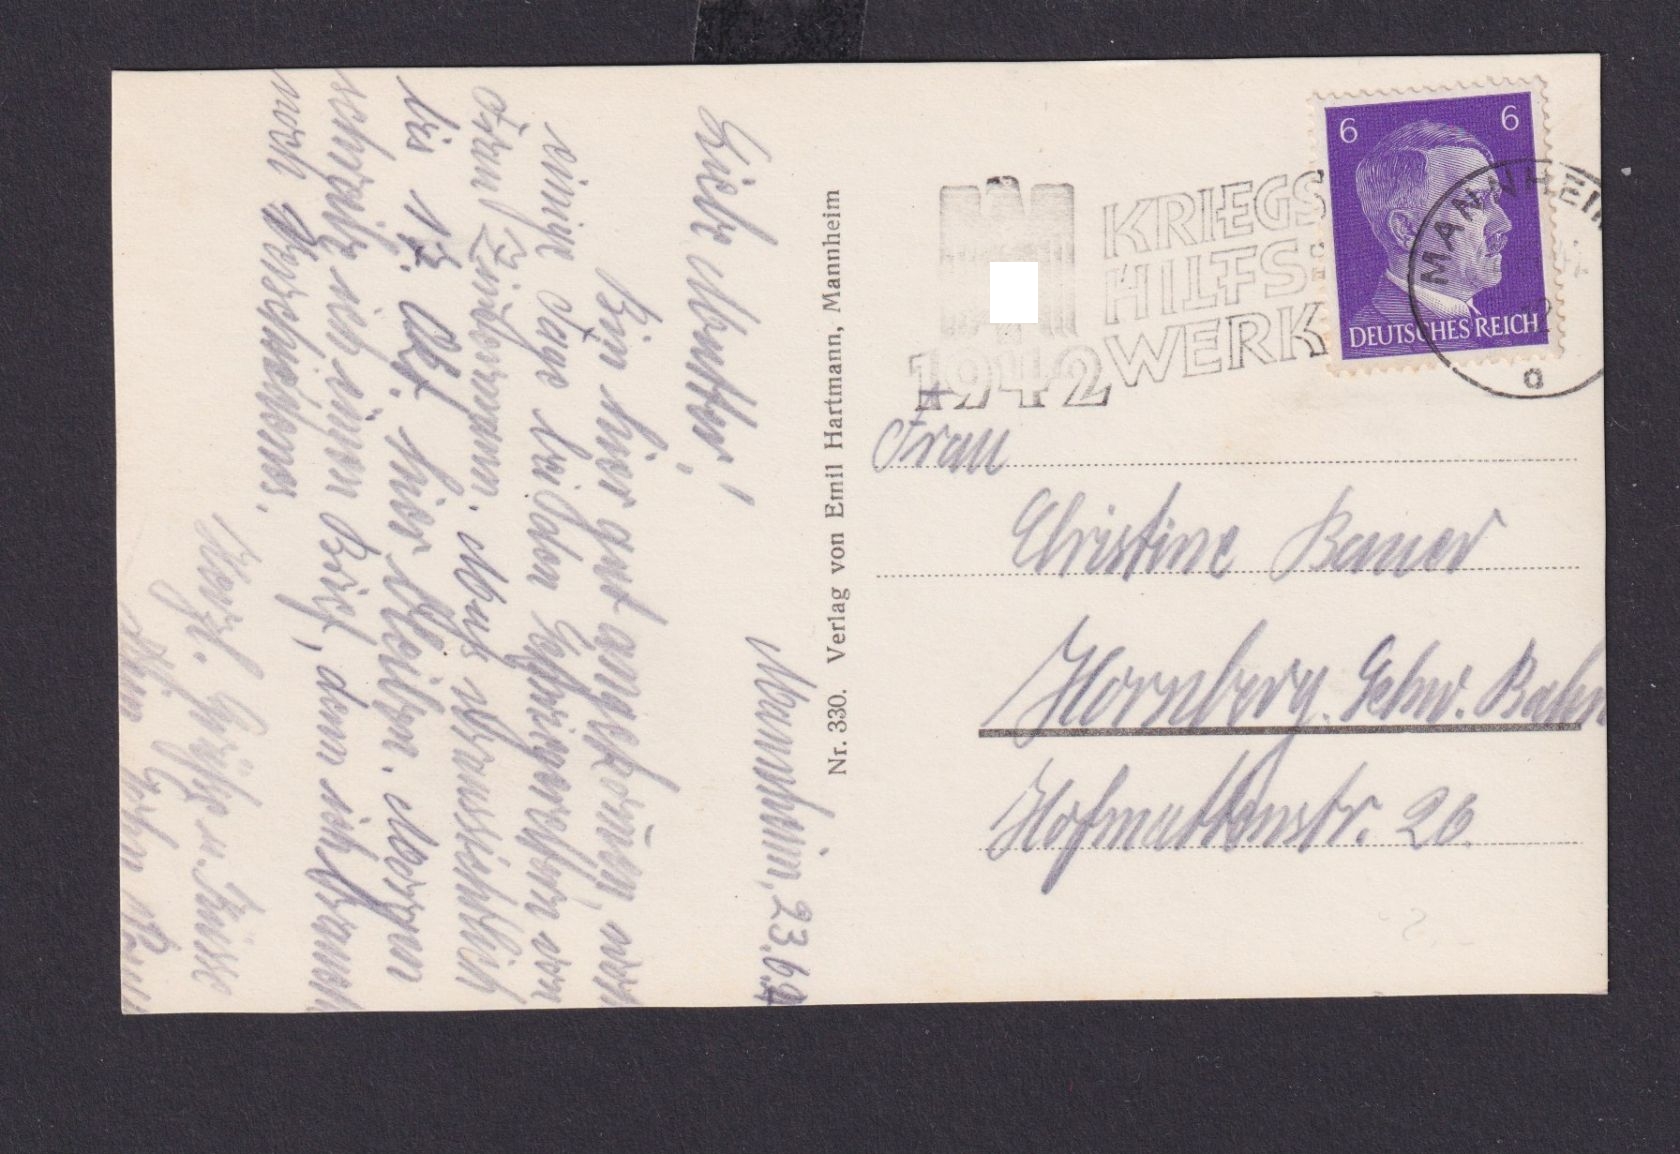 Mannheim, 23.6.42
Liebe Mutter!
Bin hier gut angekommen, werde
einige Tage bei den Schwiegereltern von
Frau Zimmermann. Muß
bis 17. Okt. hier bleiben. Morgen
schreibe ich einen Brief, dann
noch Verschiedenes.
Herzl. Grüße u. Küsse
Dein Sohn
Nr. 330. Verlag von Emil Hartmann, Mannheim
1942 KRIEGS
HILFS-
WERK
6 6
DEUTSCHES REICH
MANNHEIM
a
Frau
Christine Bauer
Hornberg. Schw. Bahn
Hofmattenstr. 26.